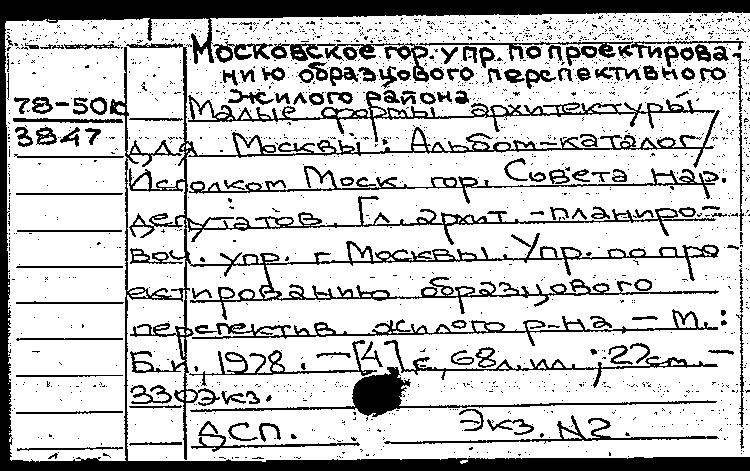 Московское гор. упр. по проектирова-
нию образцового перспективного
жилого района
78-50к
3847
Малые формы архитектуры
для Москвы: Альбом-каталог/
Исполком Моск. гор. Совета нар.
депутатов. Гл. архит.-планиро-
воч. упр. г. Москвы. Упр. по про-
ектированию образцового
перспектив. жилого р-на, - М.:
Б.и., 1978. - [4] с., 68л. ил.; 27см. -
330экз.
ДСП. Экз. N2.